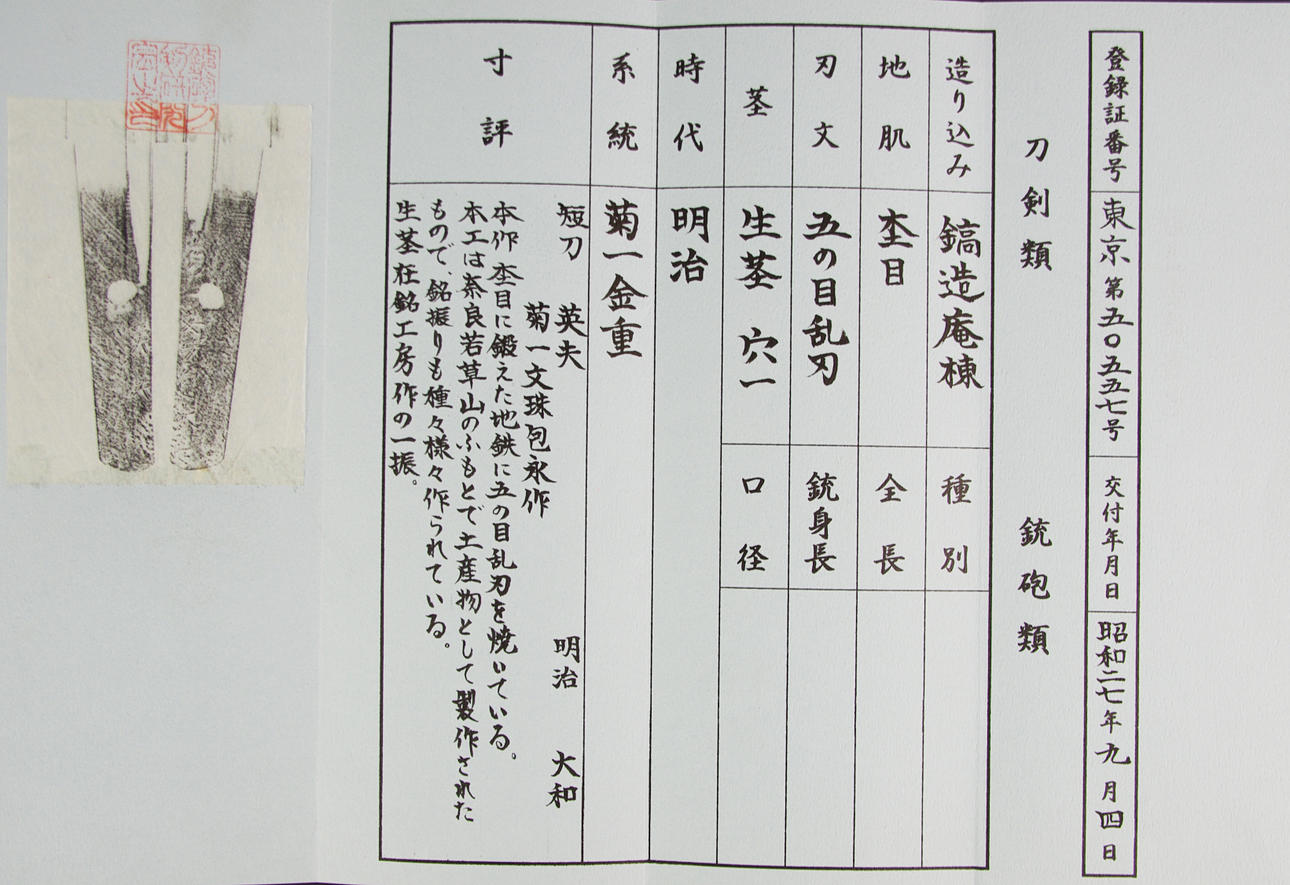 登録証番号 東京 第五〇五五七号 交付年月日 昭和二七年九月四日
刀剣類 銃砲類
造り込み 鎬造庵棟 種別
地肌 杢目 全長
刃文 五の目乱刃 銃身長
茎 生茎 穴一 口径
時代 明治
系統 菊一金重
寸評
短刀 英夫 明治 大和
菊一文珠包永作
本作杢目に鍛えた地鉄に五の目乱刃を焼いている。
本工は奈良若草山のふもとで土産物として製作された
もので、銘振りも種々様々作られている。
生茎在銘工房作の一振。